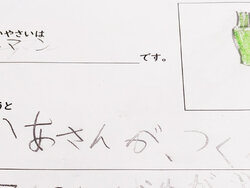 やさいは
マン
です。
うと
あさんが、つく